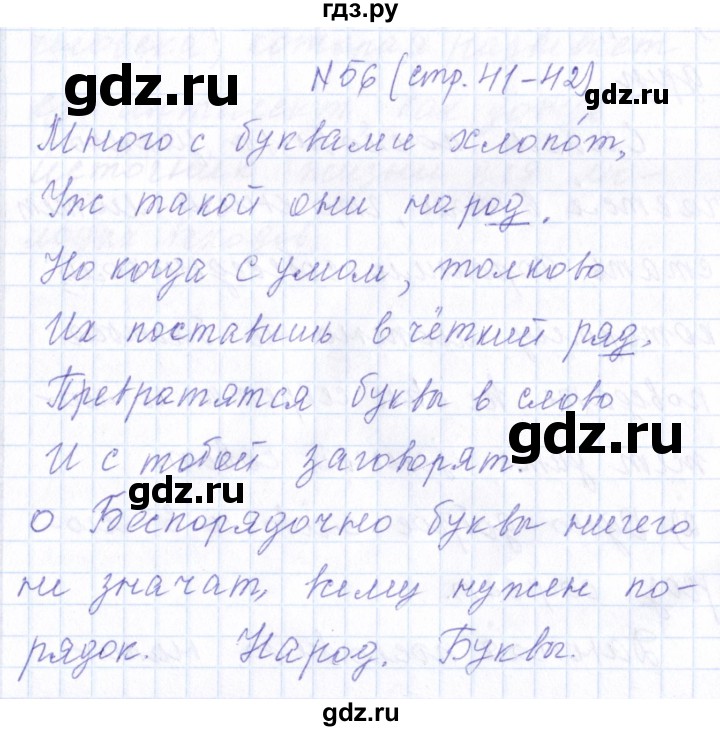 гдз.ру
№56 (стр. 41-42)
gdz.ru
Много с буквами хлопот,
Уж такой они народ.
Но когда с умом, толково
Их поставишь в чёткий ряд.
Превратятся буквы в слово
И с тобой заговорят.
gdz.ru
gdz.ru
о Беспорядочно буквы ничего
не значат, нужен по-
рядок. Народ. Буквы.
gdz.ru